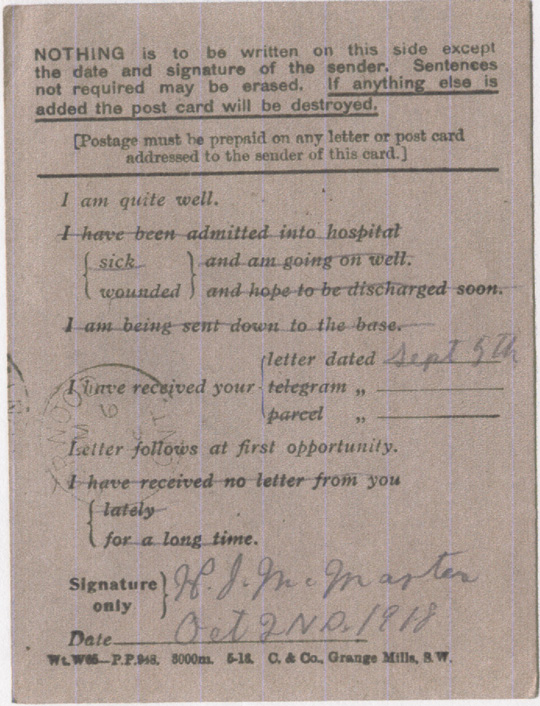 NOTHING is to be written on this side except
the date and signature of the sender. Sentences
not required may be erased. If anything else is
added the post card will be destroyed.
[Postage must be prepaid on any letter or post card
addressed to the sender of this card.]
I am quite well.
I have been admitted into hospital
{ sick } and am going on well.
{ wounded } and hope to be discharged soon.
I am being sent down to the base.
letter dated Sept 9th
I have received your { telegram „
parcel „
Letter follows at first opportunity.
I have received no letter from you
{ lately
for a long time.
Signature only } H. J. McMaster
Date Oct 2ND. 1918
Wt.W65—P.P.948. 8000m. 5-18. C. & Co., Grange Mills, S.W.